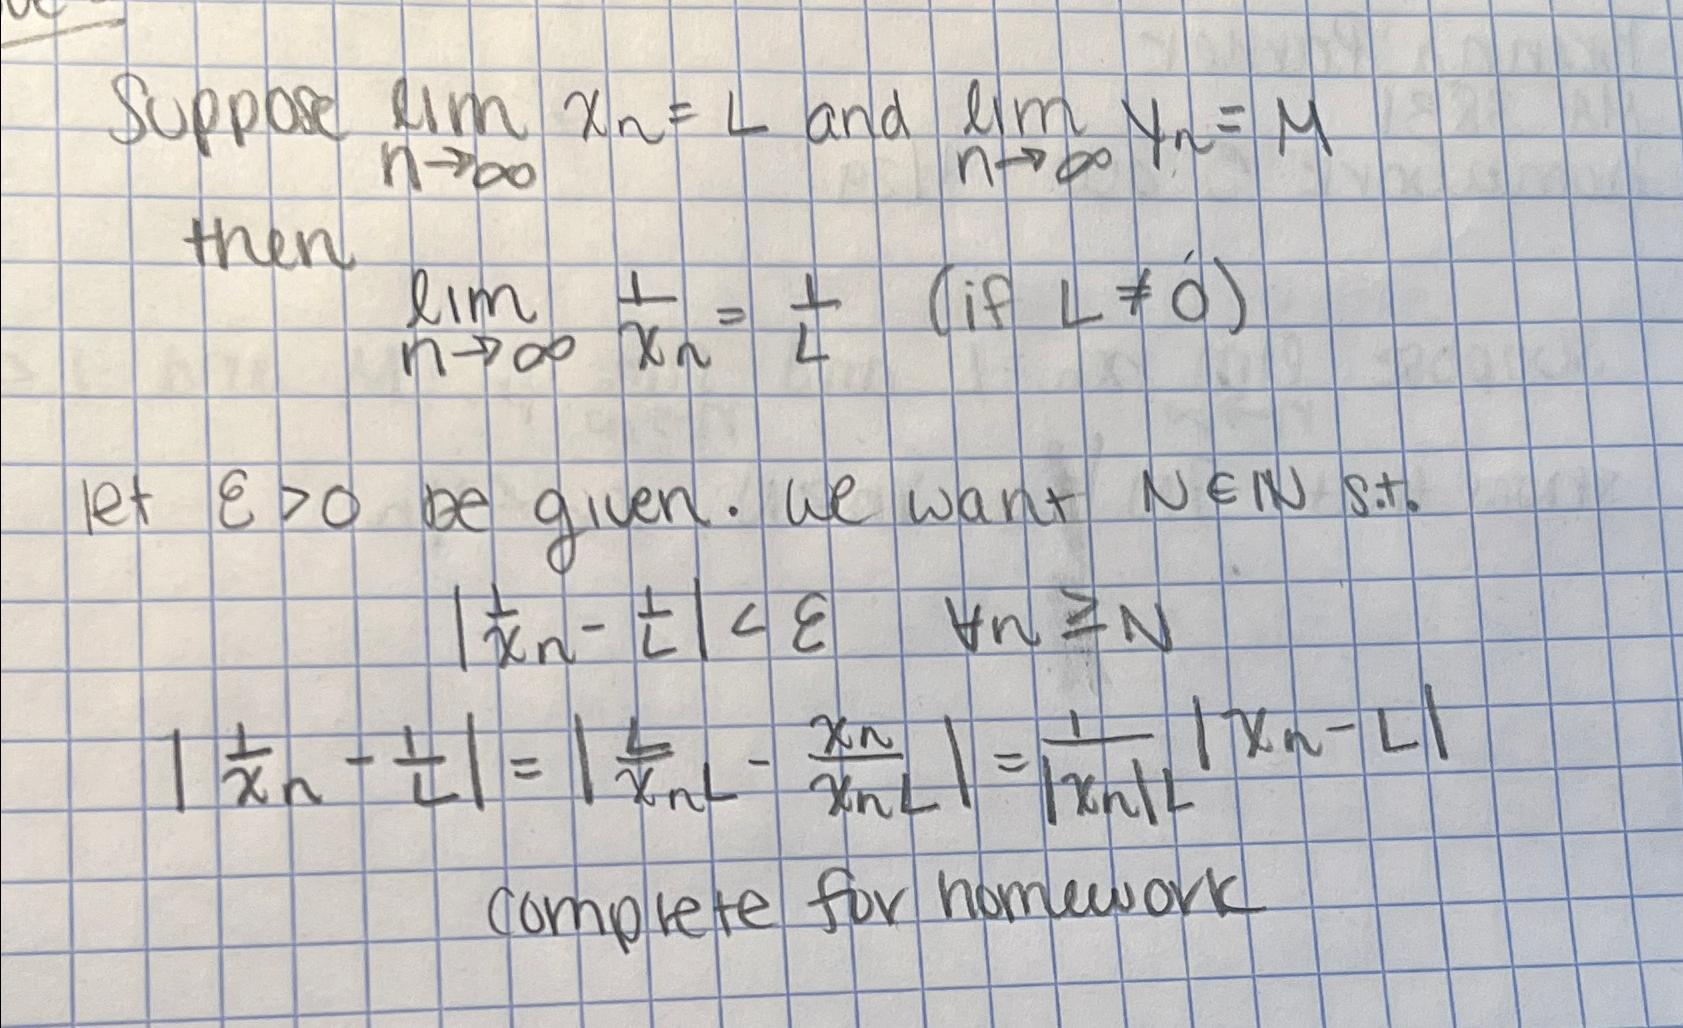 Suppose lim n→∞ xn = L and lim n→∞ yn = M
then
lim n→∞ 1/xn = 1/L (if L ≠ 0)
let ε > 0 be given. We want N ∈ ℕ s.t.
|1/xn - 1/L| < ε ∀n ≥ N
|1/xn - 1/L| = |L/xnL - xn/xnL| = 1/|xn|L |xn - L|
complete for homework